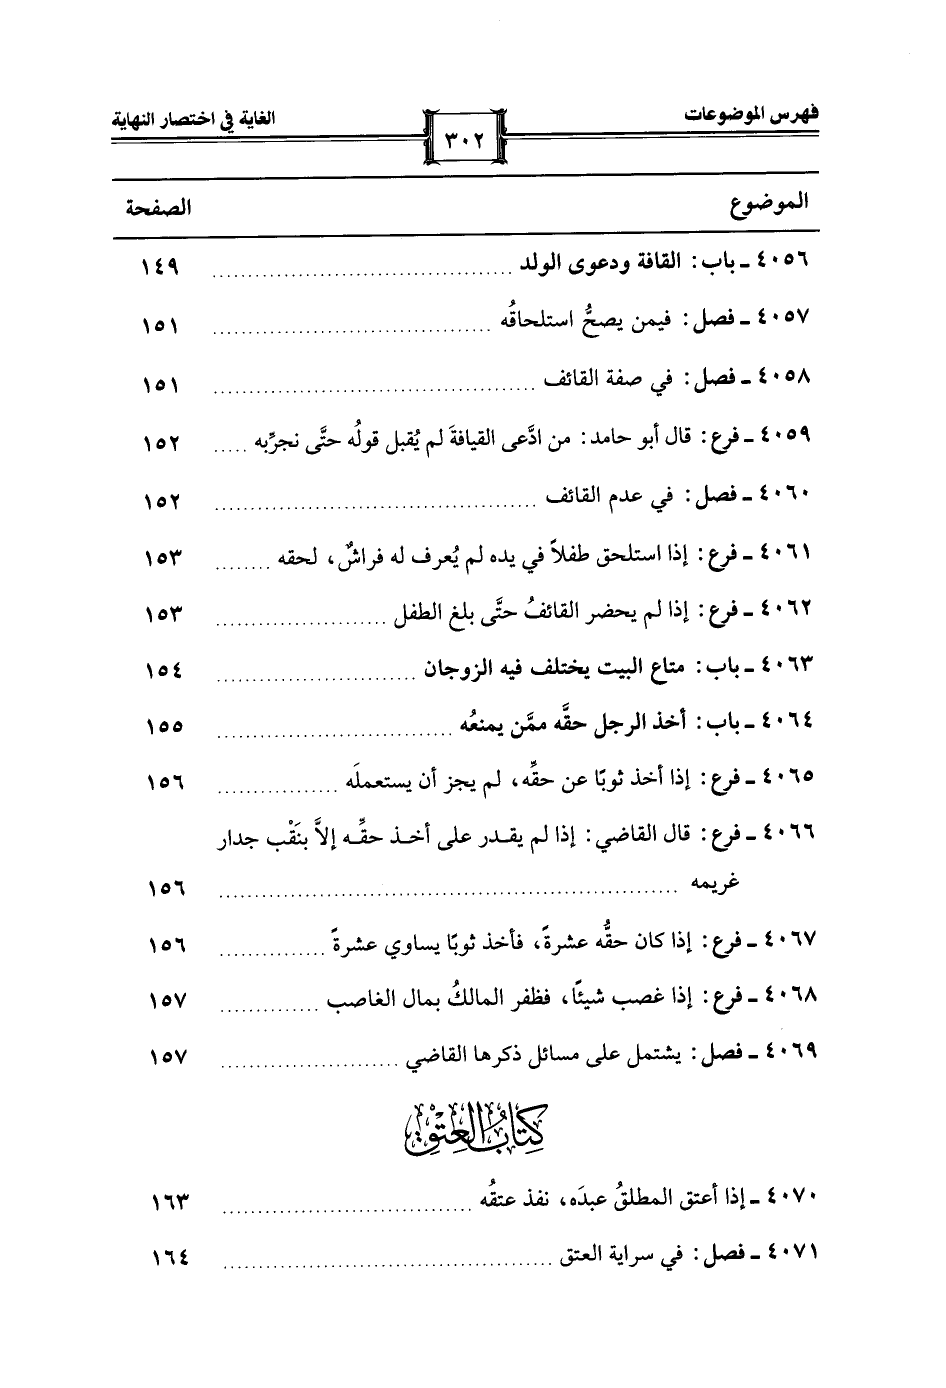 فهرس الموضوعات
٣٠٢
الغاية في اختصار النهاية
الموضوع الصفحة
٤٠٥٦ ـ باب: القافة ودعوى الولد ........ ١٤٩
٤٠٥٧ ـ فصل: فيمن يصحُّ استلحاقُه ........ ١٥١
٤٠٥٨ ـ فصل: في صفة القائف ........ ١٥١
٤٠٥٩ ـ فرع: قال أبو حامد: من ادَّعى القيافةَ لم يُقبل قولُه حتَّى نجرِّبه ..... ١٥٢
٤٠٦٠ ـ فصل: في عدم القائف ........ ١٥٢
٤٠٦١ ـ فرع: إذا استلحق طفلاً في يده لم يُعرف له فراشٌ، لحقه ........ ١٥٣
٤٠٦٢ ـ فرع: إذا لم يحضر القائفُ حتَّى بلغ الطفل ........ ١٥٣
٤٠٦٣ ـ باب: متاع البيت يختلف فيه الزوجان ........ ١٥٤
٤٠٦٤ ـ باب: أخذ الرجل حقَّه ممَّن يمنعُه ........ ١٥٥
٤٠٦٥ ـ فرع: إذا أخذ ثوبًا عن حقِّه، لم يجز أن يستعملَه ........ ١٥٦
٤٠٦٦ ـ فرع: قال القاضي: إذا لم يقـدر على أخـذ حقِّـه إلاَّ بنَقْب جدار
غريمه ........ ١٥٦
٤٠٦٧ ـ فرع: إذا كان حقُّه عشرةً، فأخذ ثوبًا يساوي عشرةً ........ ١٥٦
٤٠٦٨ ـ فرع: إذا غصب شيئًا، فظفر المالكُ بمال الغاصب ........ ١٥٧
٤٠٦٩ ـ فصل: يشتمل على مسائل ذكرها القاضي ........ ١٥٧
كِتَابُ العِتْقِ
٤٠٧٠ ـ إذا أعتق المطلقُ عبدَه، نفذ عتقُه ........ ١٦٣
٤٠٧١ ـ فصل: في سراية العتق ........ ١٦٤